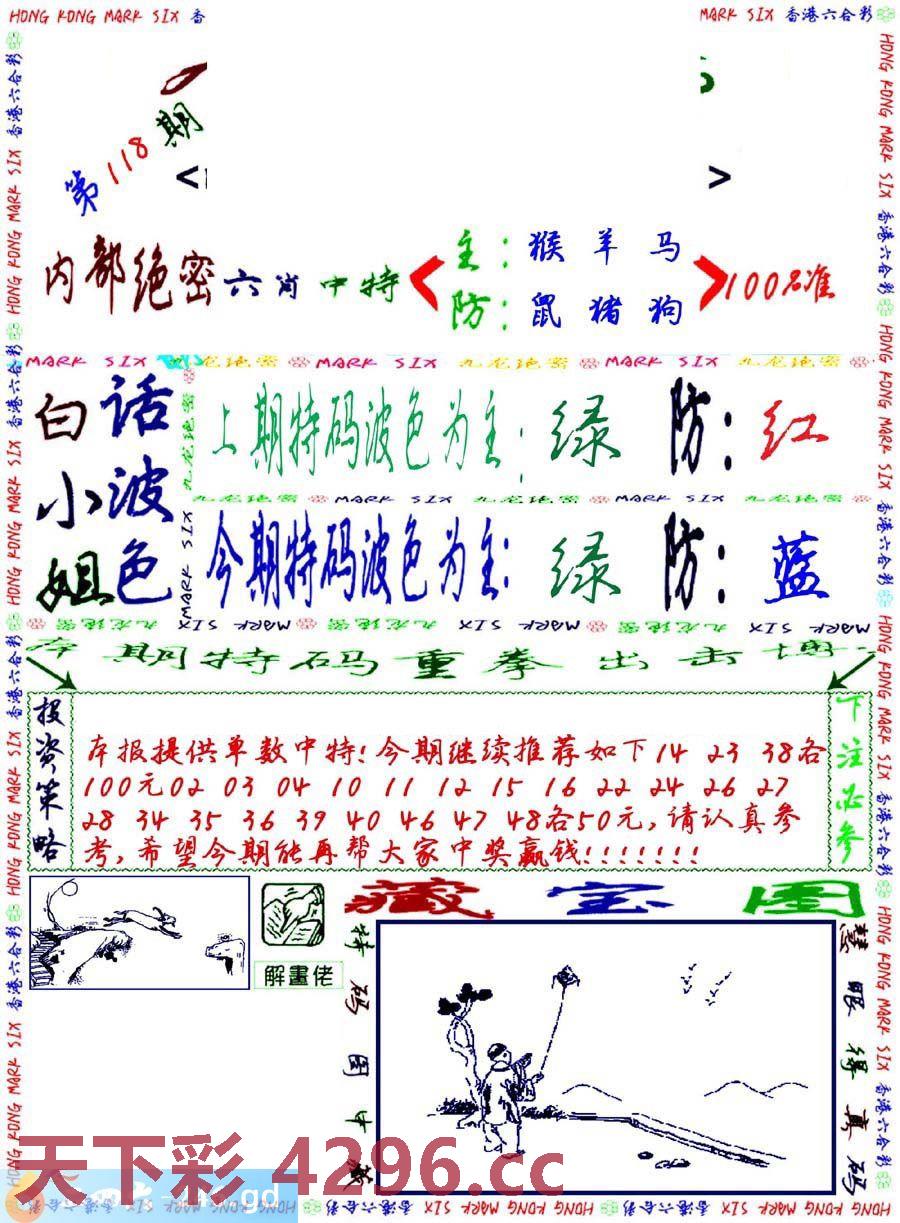 HONG KONG MARK SIX 香
MARK SIX 香港六合彩
第118期
< >
内部绝密六肖中特
主:猴羊马
防:鼠猪狗
100%准
MARK SIX 九龙绝密 MARK SIX 九龙绝密 MARK SIX 九龙绝密
白小姐
话波色
上期特码波色为主:绿 防:红
九龙绝密 MARK SIX 九龙绝密 MARK SIX 九龙绝密
今期特码波色为主:绿 防:蓝
期特码重拳出击
投资策略
本报提供单数中特!今期继续推荐如下14 23 38各
100元02 03 04 10 11 12 15 16 22 24 26 27
28 34 35 36 39 40 46 47 48各50元,请认真参
考,希望今期能再帮大家中奖赢钱!!!!!!!
下注必参
解畫佬
藏宝图
特码图中藏
慧眼得真码
天下彩 4296.cc
gd
HONG KONG MARK SIX 香港六合彩